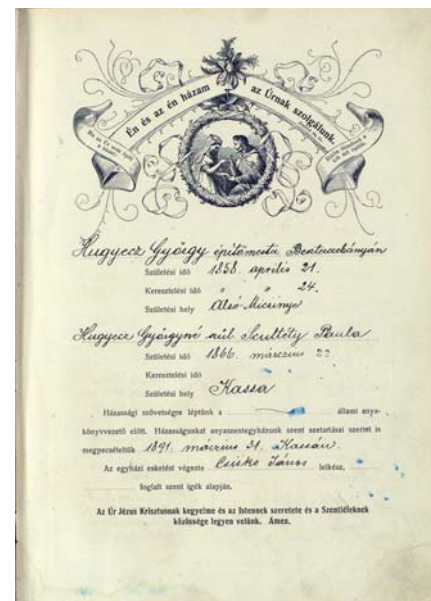 Én és az én házam az Úrnak szolgálunk.
Hugyecz György építőmester Beszterczebányán
Születési idő 1858. április 21.
Keresztelési idő " " 24.
Születési hely Alsó-Micsinye
Hugyecz Györgyné szül. Scultéty Paula
Születési idő 1866. március 22.
Keresztelési idő
Születési hely Kassa
Házassági szövetségre léptünk a állami anya-
könyvvezető előtt. Házasságunkat anyaszentegyházunk szent szertartásai szerint is
megpecsételtük 1891. március 31. Kassán.
Az egyházi esketést végezte Csiskó János lelkész,
foglalt szent igék alapján.
Az Úr Jézus Krisztusnak kegyelme és az Istennek szeretete és a Szentléleknek
közössége legyen velünk. Ámen.